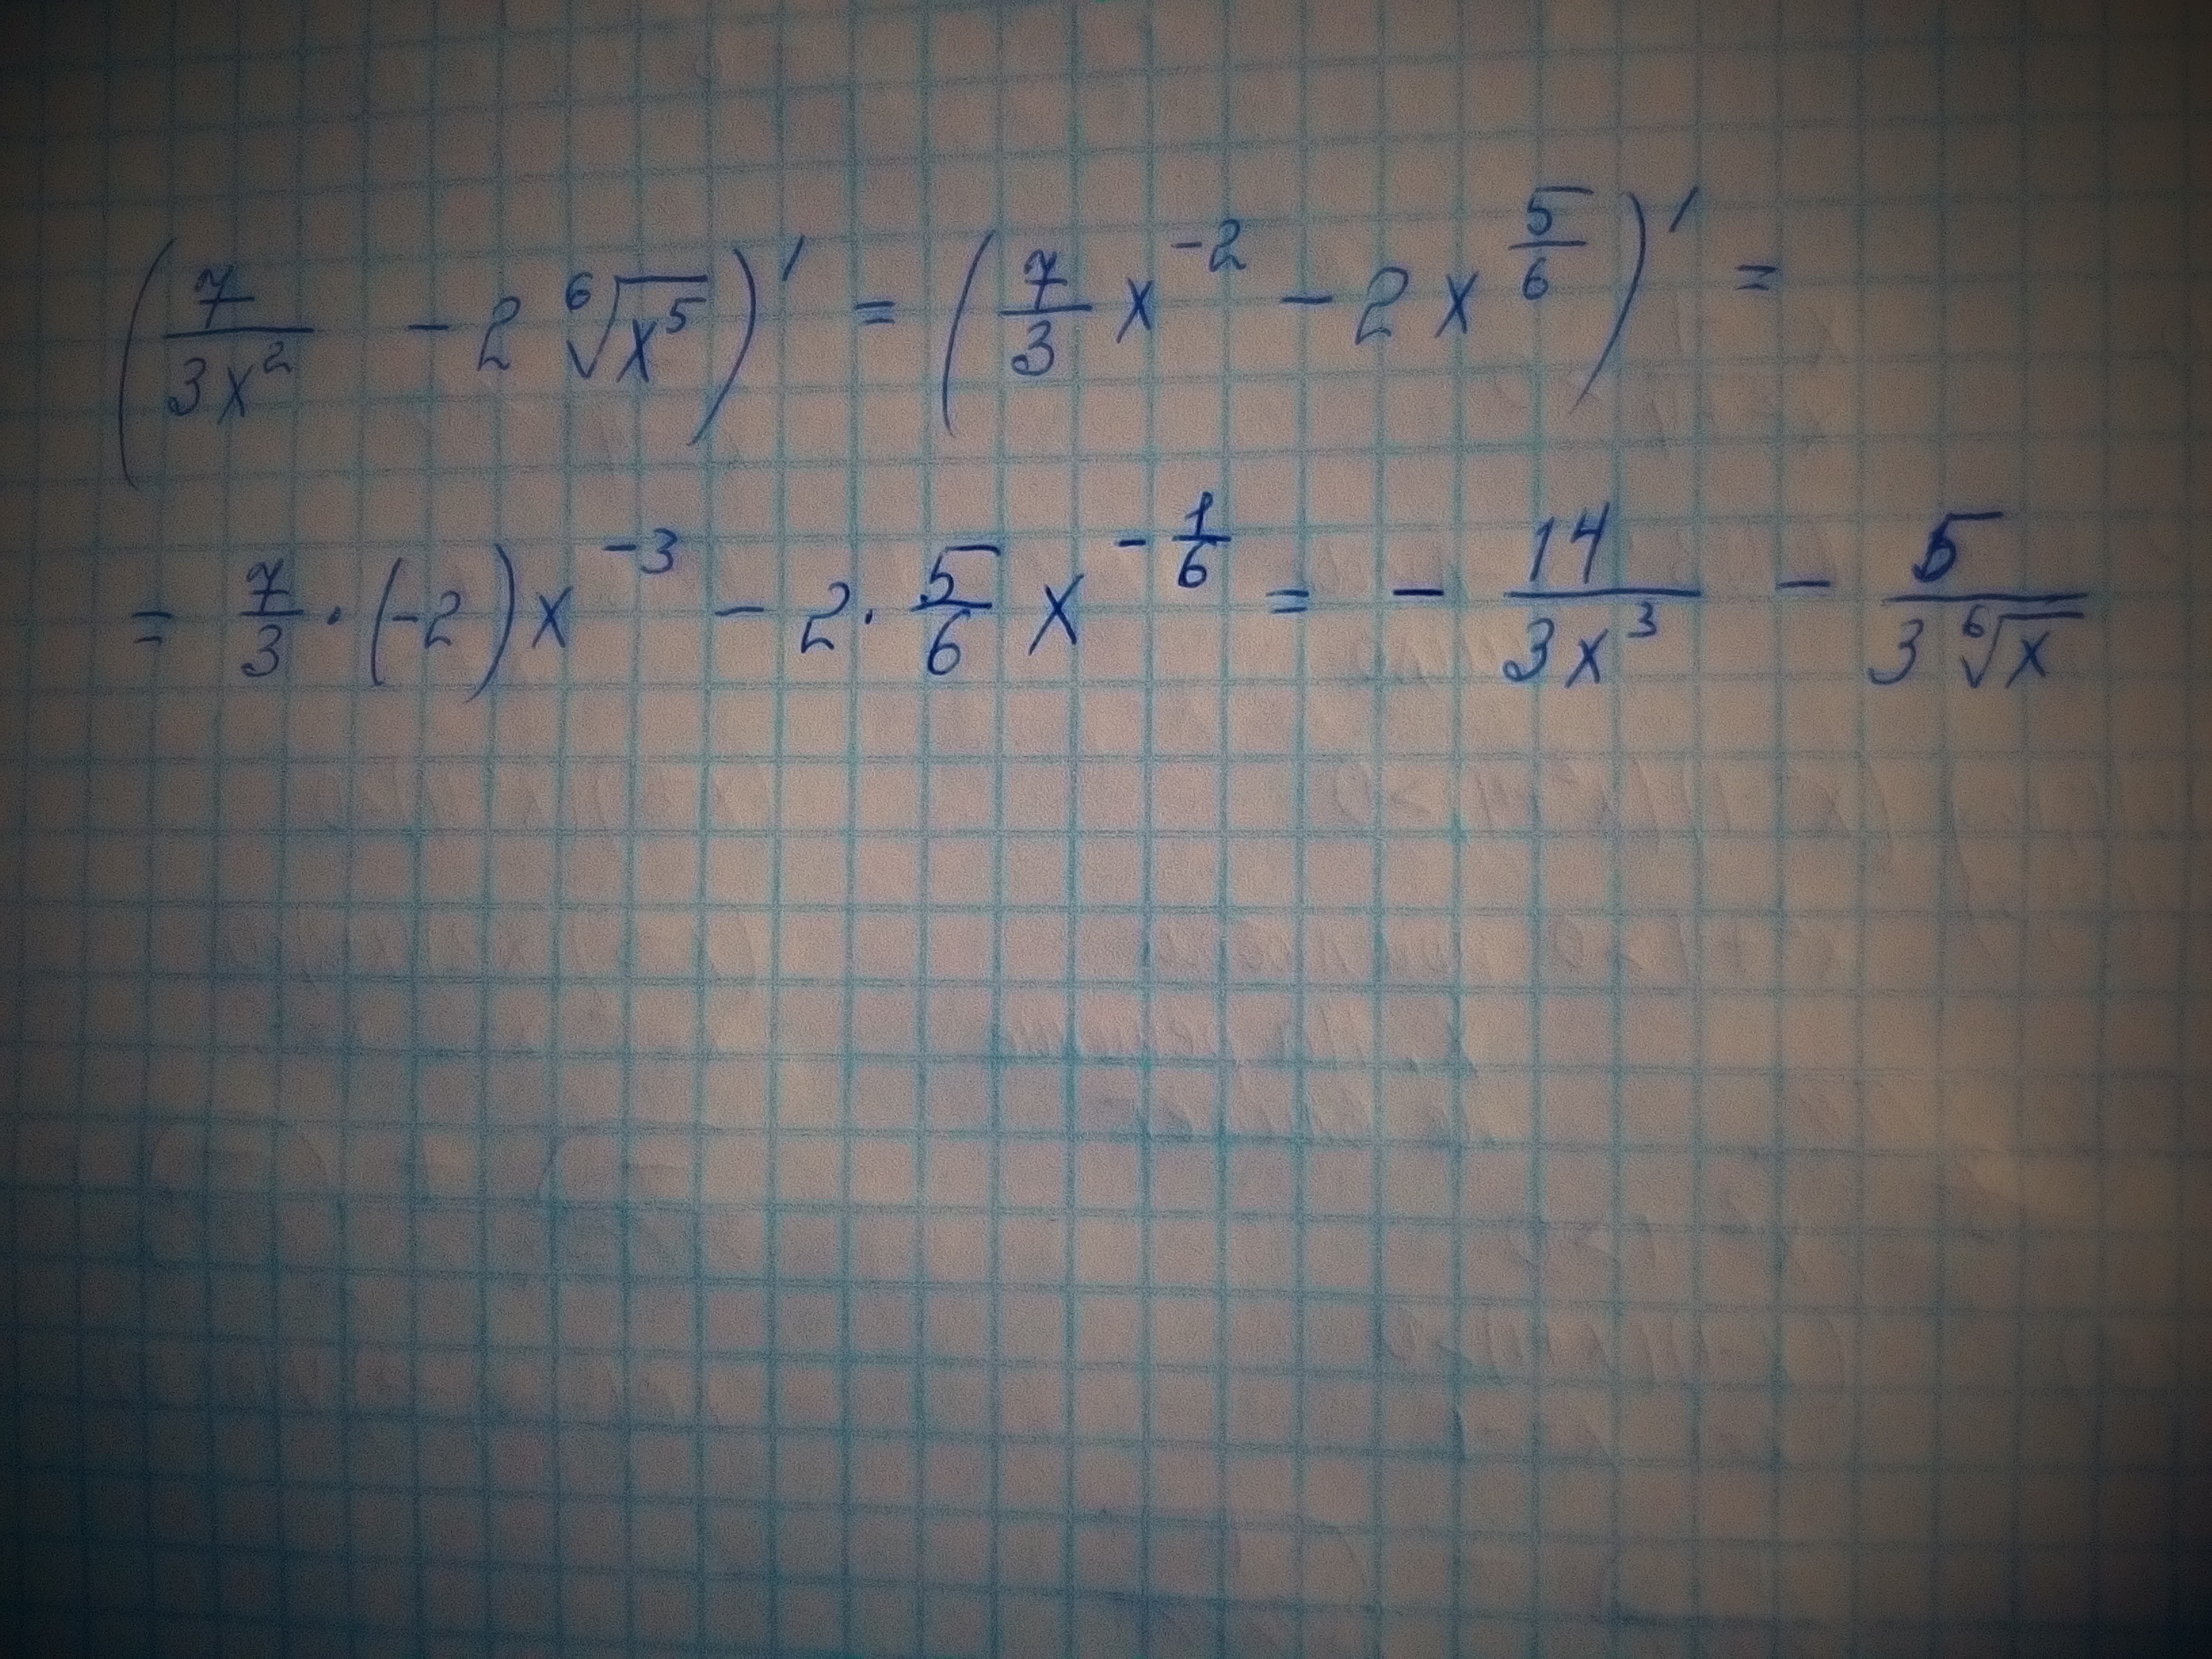 (7/(3x²) - 2 ⁶√(x⁵))' = (7/3 x^(-2) - 2x^(5/6))' =
= 7/3 · (-2)x^(-3) - 2 · 5/6 x^(-1/6) = - 14/(3x³) - 5/(3 ⁶√x)